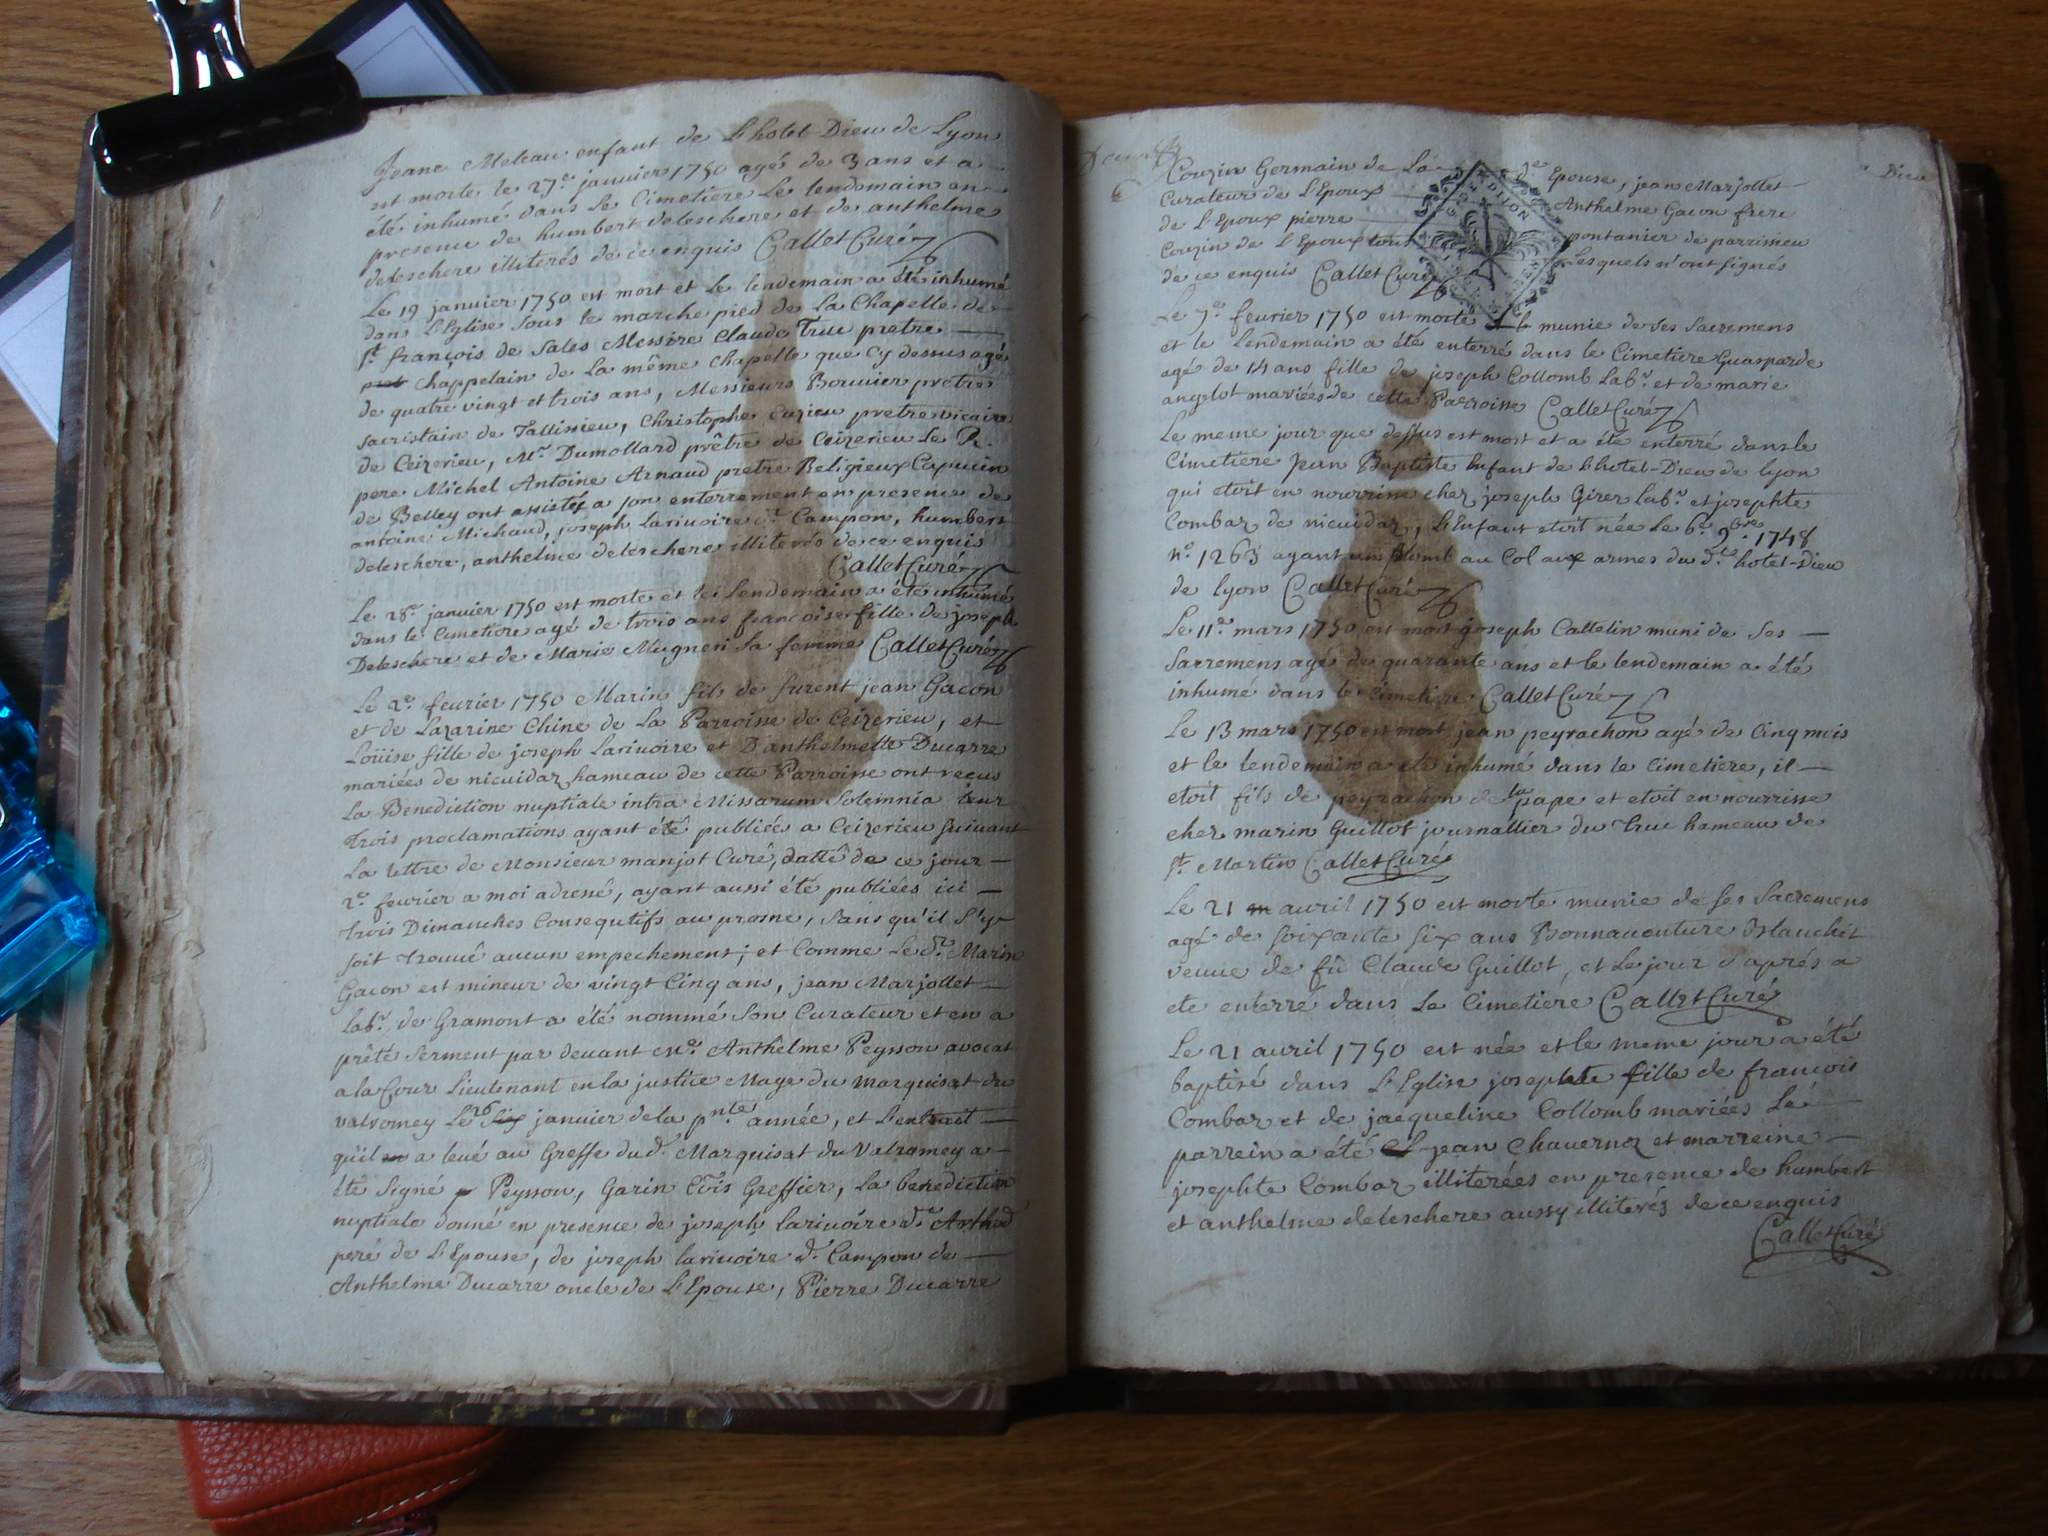 Jeane Meleau enfant de L'hotel-Dieu de Lyon
est morte le 27.e janvier 1750 agés de 3 ans et a
été inhumé dans Le Cimetiere Le lendemain en
presence de humbert deleschere et de anthelme
deleschere illiterés de ce enquis Callet Curé
Le 19 janvier 1750 est mort et Le lendemain a été inhumé
dans L'Eglise sous le marche pied de La Chapelle de
st. françois de Sales Messire Claude truc pretre
chappelain de La même chapelle que cy dessus agé
de quatre vingt et trois ans, Messieurs Bouvier pretre
sacristain de Tallissieu, Christophe Cuzieu pretre vicaire
de Ceizerieu, Mr. Dumollard prêtre de Ceizerieu Le R.
pere Michel Antoine Arnaud pretre Religieux Capucin
de Belley ont assistés a son enterrement en presence de
antoine Michaud, joseph Larivoire dt. Campon, humbert
deleschere, anthelme deleschere illiterés de ce enquis
Callet Curé
Le 28.e janvier 1750 est morte et le Lendemain a été inhumé
dans le Cimetiere agé de trois ans francoise fille de joseph
Deleschere et de Marie Mugneri sa femme Callet Curé
Le 2.e fevrier 1750 Marin fils de furent jean Gacon
et de Lazarine Chine de La Parroisse de Ceizerieu, et
Loüise fille de joseph Larivoire et D'anthelmette Ducarre
mariées de nicuidaz hameau de cette Parroisse ont recus
La Benediction nuptiale intra Missarum Solemnia leur
trois proclamations ayant été publiées a Ceizerieu suivant
La lettre de Monsieur manjot Curé, datté de ce jour
2.e fevrier a moi adressé, ayant aussi été publiées ici
trois Dimanches Consequtifs au prosne, sans qu'il s'y
soit trouvé aucun empechement; et Comme Le dt. Marin
Gacon est mineur de vingt Cinq ans, jean Marjollet
labr. de Gramont a été nommé son Curateur et en a
prêté serment par devant me. Anthelme Peysson avocat
a la Cour Lieutenant en la justice Mage du marquisat du
valromey Le 26 six janvier de la pnte année, et L'extrait
qu'il en a levé au Greffe du d. Marquisat du Valromey a
été signé p Peysson, Garin Greffier, La benediction
nuptiale donné en presence de joseph larivoire
peré de L'Epouse, de joseph larivoire dt. Campon de
Anthelme Ducarre oncle de L'Epouse, Pierre Ducarre
Couzin Germain de La de Epouse, jean Marjollet
Curateur de L'Epoux Anthelme Gacon frere
de L'Epoux pierre pontanier de parrimieu
Couzin de L'Epoux tous Lesquels n'ont signés
de ce enquis Callet Curé
Dieu
Le 7.e fevrier 1750 est morte munie de ses sacremens
et le Lendemain a été enterré dans le Cimetiere Guasparde
agé de 14 ans fille de joseph Collomb Labr. et de marie
anglot mariées de cette Parroisse Callet Curé
Le meme jour que dessus est mort et a été enterré dans le
Cimetiere Jean Baptiste Enfant de L'hotel-Dieu de Lyon
qui etoit en nourrisse chez joseph Girer labr. et josephte
Combaz de nicuidaz, L'Enfant etoit née Le 6.e 9bre. 1748
no. 1263 ayant un plomb au Col aux armes du dt. hotel-Dieu
de Lyon Callet Curé
Le 11.e mars 1750 est mort joseph Cattelin muni de ses
Sacremens agé de quarante ans et le lendemain a été
inhumé dans le Cimetiere Callet Curé
Le 13 mars 1750 est mort jean peyrachon agé de Cinq mois
et le lendemain a été inhumé dans le Cimetiere, il
etoit fils de peyrachon de la pape et etoit en nourrisse
chez marin Guillot journallier du truc hameau de
st. Martin Callet Curé
Le 21 avril 1750 est morte munie de ses Sacremens
agé de soixante six ans Bonnaventure Blanchet
veuve de fû Claude Guillot, et Le jour d'aprés a
ete enterré dans Le Cimetieré Callet Curé
Le 21 avril 1750 est née et le meme jour a été
baptisé dans L'Eglise josephte fille de francois
Combaz et de jacqueline Collomb mariées Le
parrein a été jean Chavernoz et marreine
josephte Combaz illiterées en presence de humbert
et anthelme deleschere aussy illiterés de ce enquis
Callet Curé